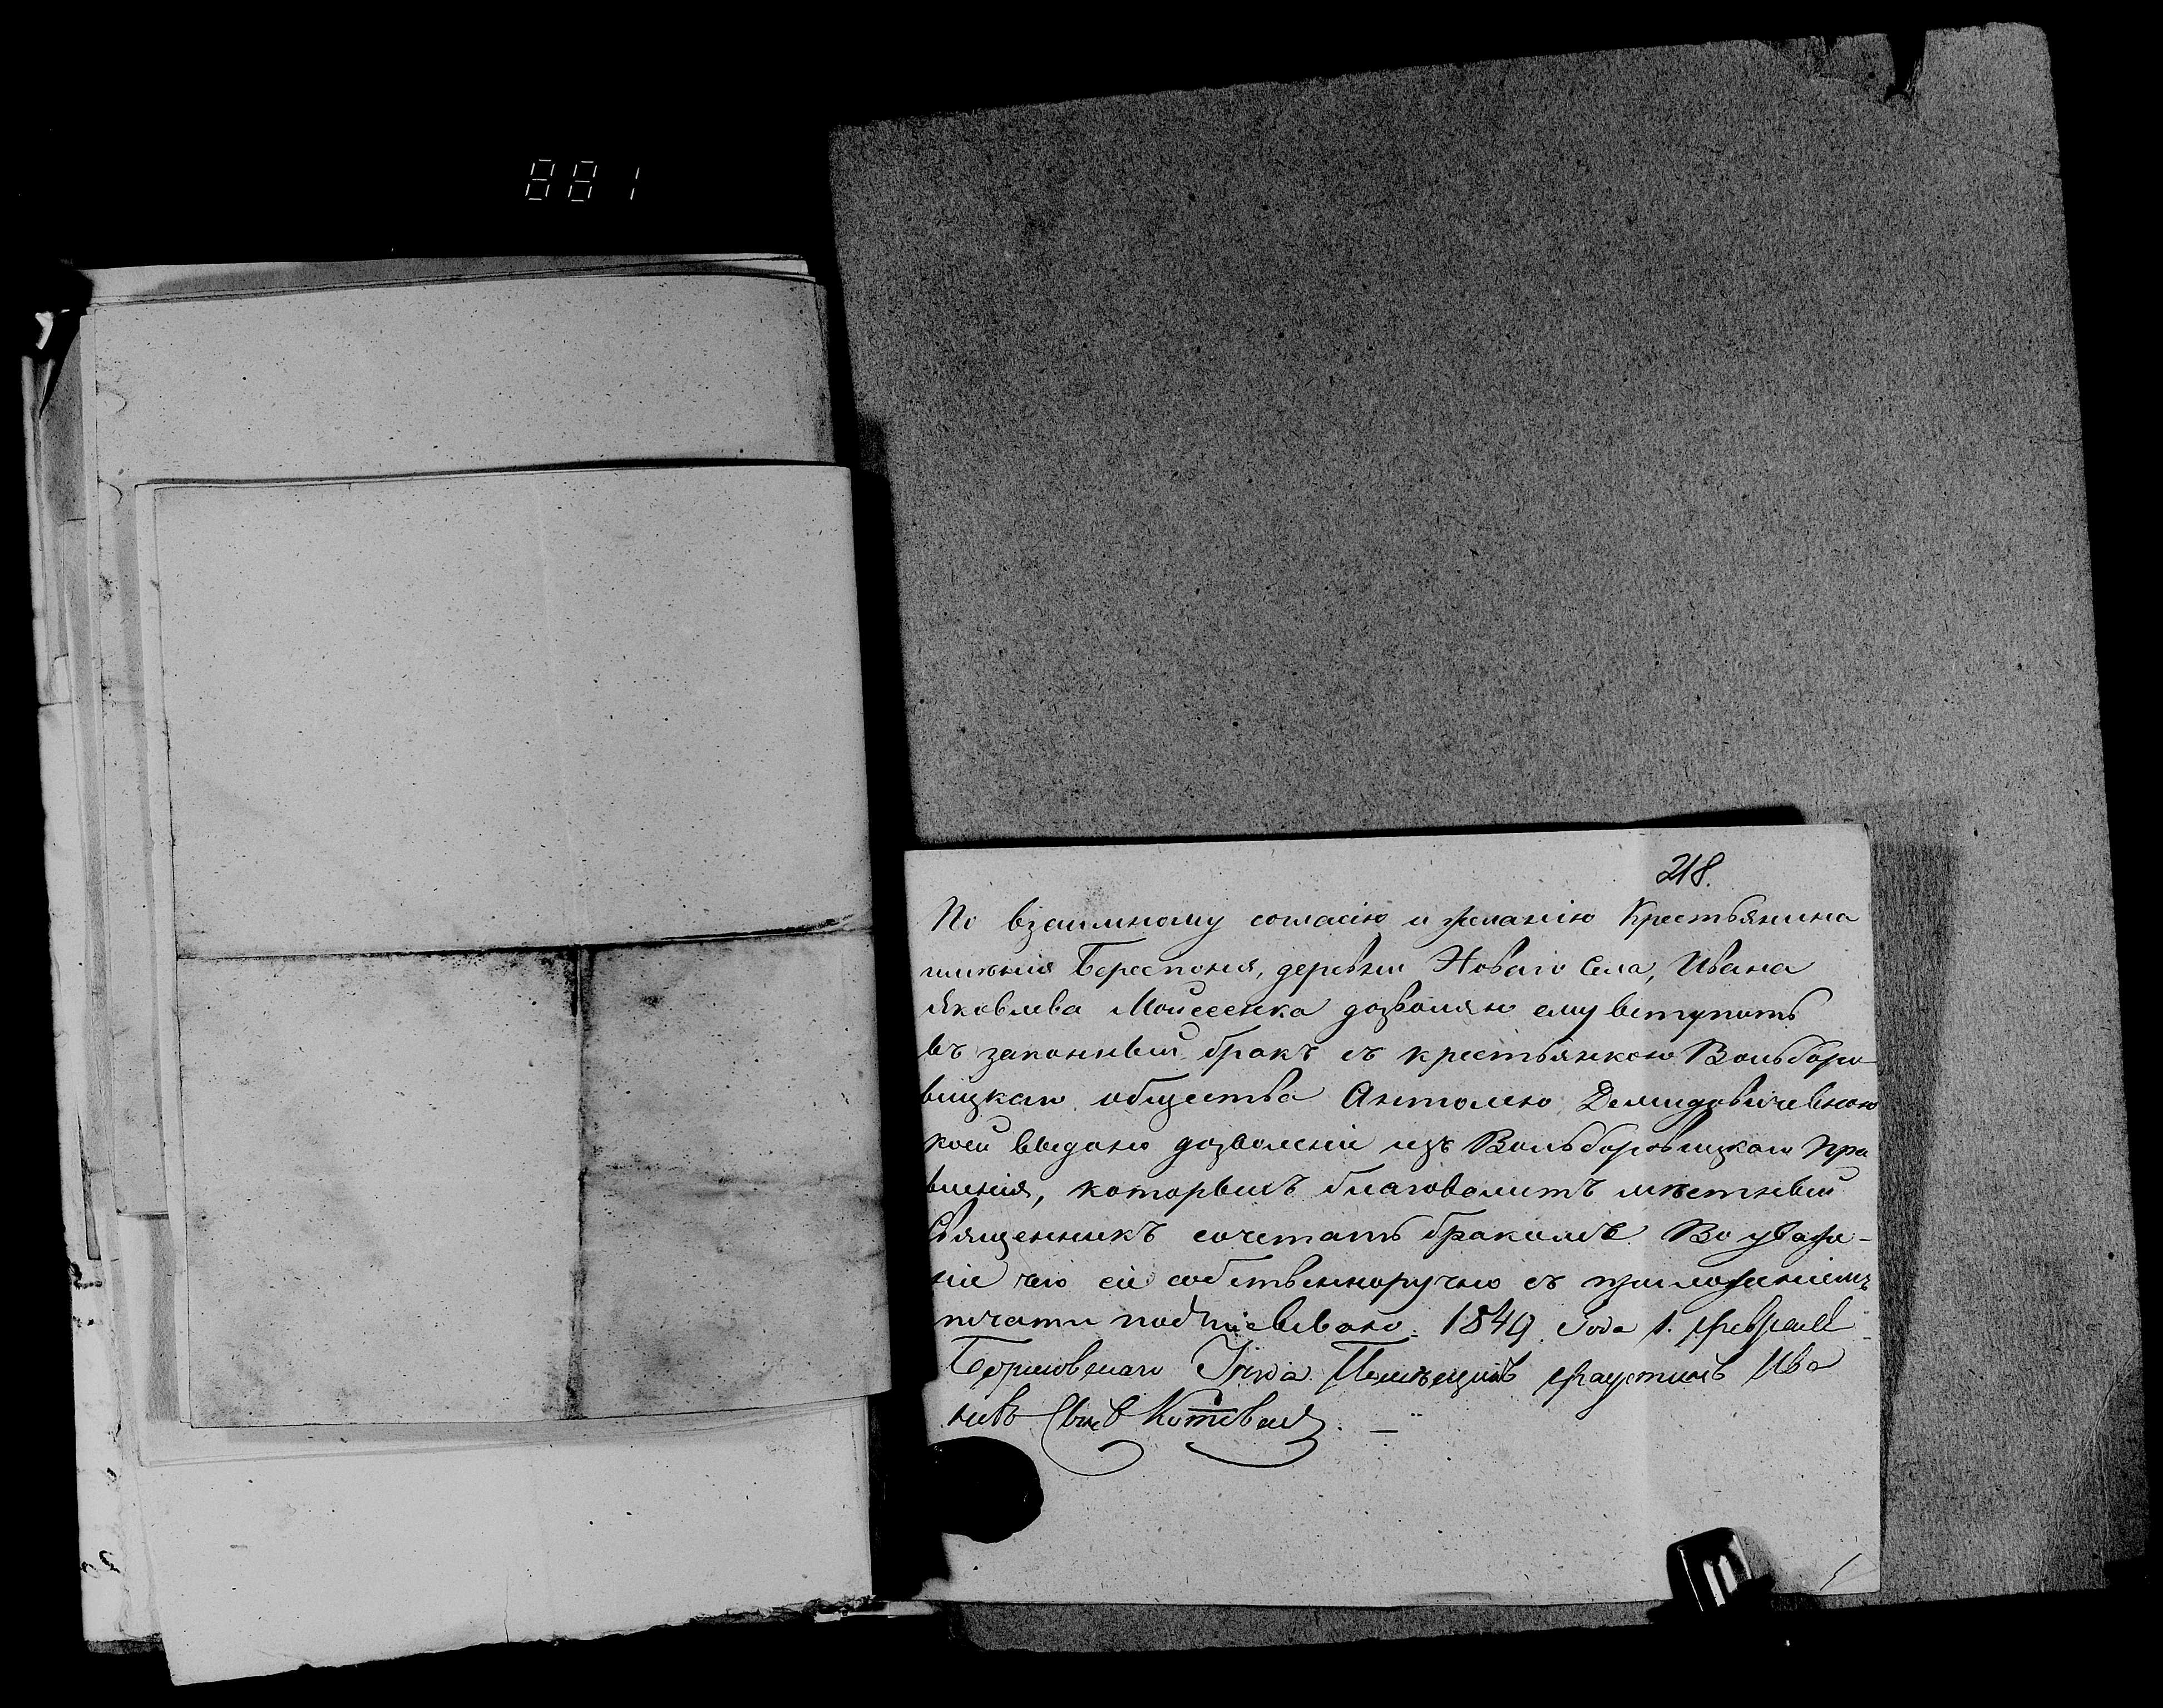 881
218.
По взаимному согласію и желанію Крестьянина
имѣнія Береспоня, деревни Новаго Села, Ивана
Яковлева Мойсеенка дозволяю ему вступить
въ законный бракъ съ крестьянкою Вольборо-
вицкаго общества Антолею Демидовичевною
коей выдано дозволеніе изъ Вольборовицкаго пра
вленія, которыхъ благоволитъ мѣстный
Священникъ сочетать бракомъ. Во уваже-
ніе чего сіе собственноручно съ приложеніемъ
печати подписывано. 1849 Года 1. февраля
Борисовскаго Помѣщикъ Фаустинъ Ива
новъ Сынъ